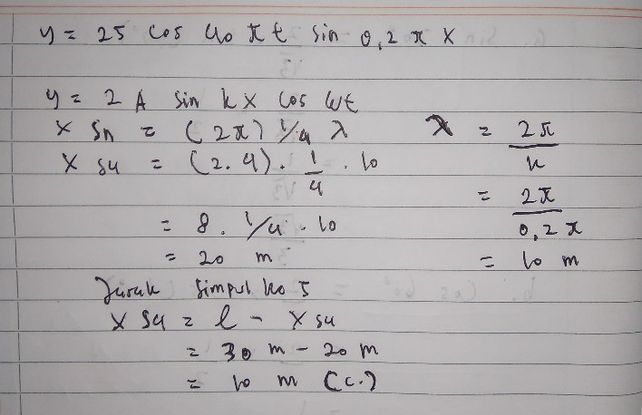 y = 25 cos 40 π t sin 0,2 π x
y = 2 A sin kx cos ωt
x Sn = (2π) 1/4 λ
x S4 = (2.4). 1/4 . 10
= 8 . 1/4 . 10
= 20 m
λ = 2π/k
= 2π/0,2 π
= 10 m
Jarak Simpul ke 5
x S4 = l - x S4
= 30 m - 20 m
= 10 m (c.)